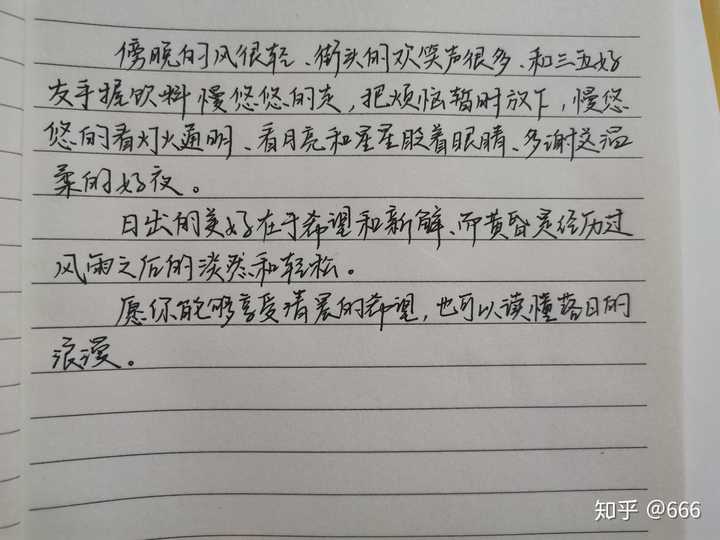 傍晚的风很轻、街头的欢笑声很多、和三五好
友手握饮料慢悠悠的走，把烦恼暂时放下，慢悠
悠的看灯火通明、看月亮和星星眨着眼睛、多谢这温
柔的好夜。
日出的美好在于希望和新鲜、而黄昏是经历过
风雨之后的淡然和轻松。
愿你能够享受清晨的希望，也可以读懂落日的
浪漫。
知乎 @666